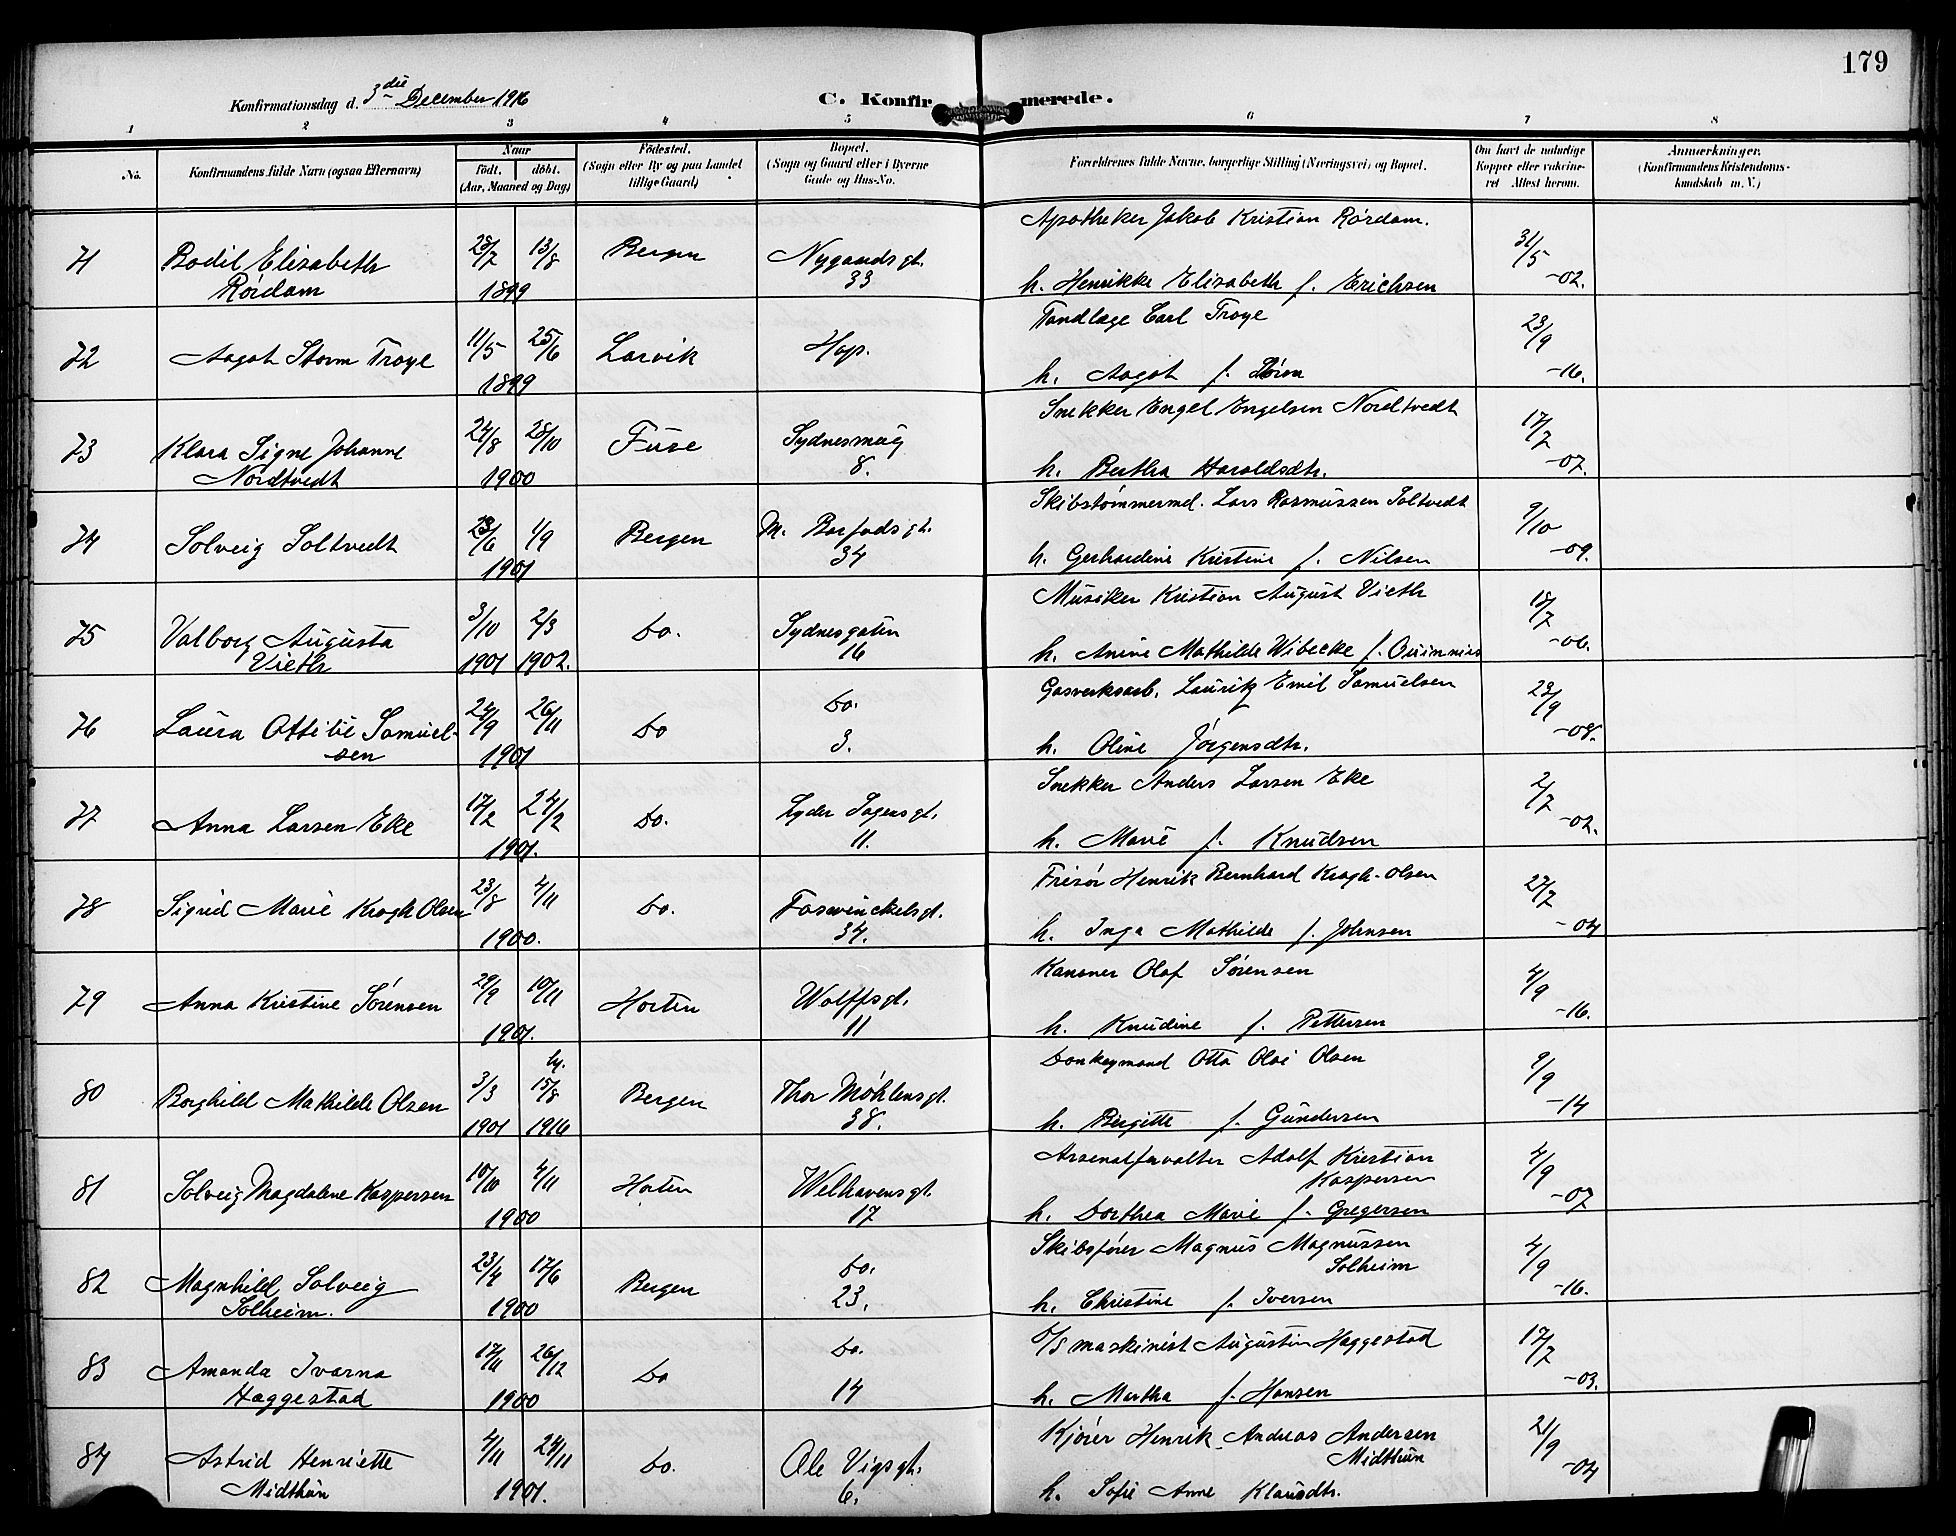 179
Konfirmationsdag d. 3die December 1916
C. Konfirmerede.
1 2 3 4 5 6 7 8
No. Konfirmandens fulde Navn (ogsaa Efternavn) Naar født. døbt. (Aar, Maaned og Dag) Fødested. (Sogn eller By og paa Landet tillige Gaard) Bopæl. (Sogn og Gaard eller i Byerne Gade og Hus-No. Forældrenes fulde Navne, borgerlige Stilling (Næringsvei) og Bopæl. Om havt de naturlige Kopper eller vakcineret Attest herom. Anmærkninger. (Konfirmandens Kristendomskundskab m. V.)
Apotheker Jakob Kristian Rørdam.
71 Bodil Elisabeth 28/7 13/8 Bergen Nygaardsgt. 31/5
Rørdam 1899 33 h. Henrikke Elisabeth f. Erichsen -02.
Tandlæge Carl Troye
72 Aagot Storm Troye 11/5 25/6 Larvik Hop. 23/9
1899 h. Aagot f. -16.
Snekker Engel Engelsen Nordtvedt
73 Klara Signe Johanne 24/8 28/10 Fuse Sydnesmug 17/7
Nordtvedt 1900 8. h. Bertha Haroldsdtr. -07.
Skibstømmermd. Lars Rasmussen Soltvedt
74 Solveig Soltvedt 23/6 1/9 Bergen M. Barfodsgt. 9/10
1901 34 h. Gerhardine Kristine f. Nilsen -09.
Musiker Kristian August Vieth
75 Valborg Augusta 3/10 2/3 Do. Sydnesgaten 18/7
Vieth 1901 1902. 16 h. Anine Mathilde Wibecke f. -06.
Gasverksarb. Lauritz Emil Samuelsen
76 Laura Ottilie Samuel- 24/9 26/11 Do Do. 23/9
sen 1901 3. h. Oline Jørgensdtr. -08.
Snekker Anders Larsen Eke
77 Anna Larsen Eke 17/2 24/2 Do. Lyder Sagensgt. 2/7
1901. 11. h. Marie f. Knudsen -02.
Frisør Henrik Bernhard Krogh-Olsen
78 Sigrid Marie Krogh Olsen 23/8 4/11 Do. Fosswinckelsgt. 27/7
1900. 34. h. Inga Mathilde f. Johnsen -04
Kanoner Olaf Sørensen
79 Anna Kristine Sørensen 29/9 10/11 Horten Wolffsgt. 4/9
1901. 11 h. Knudine f. Pettersen -16.
Donkeymand Otto Olai Olsen
80 Borghild Mathilde Olsen 3/3 15/8 Bergen Thor Møhlensgt. 9/9
1901 1916 38. h. Birgitte f. Gundersen -14
Arsenalforvalter Adolf Kristian
Kaspersen
81 Solveig Magdalene Kaspersen 10/10 4/11 Horten Welhavensgt. 4/9
1900 17 h. Dorthea Marie f. Gregersen -07
Skibsfører Magnus Magnussen
Solheim
82 Magnhild Solveig 23/4 17/6 Bergen Do. 4/9
Solheim. 1900 23. h. Christine f. Iversen -16.
D/S maskinist Augustin Haggestad
83 Amanda Ivarna 17/11 26/12 Do Do. 17/7
Haggestad 1900 14 h. Martha f. Hansen -03.
Kjører Henrik Andreas Andersen
Midthun
84 Astrid Henriette 4/11 24/11 Do. Ole Vigsgt. 21/9
Midthun 1901. 6. h. Sofie Anne Klausdtr. -04